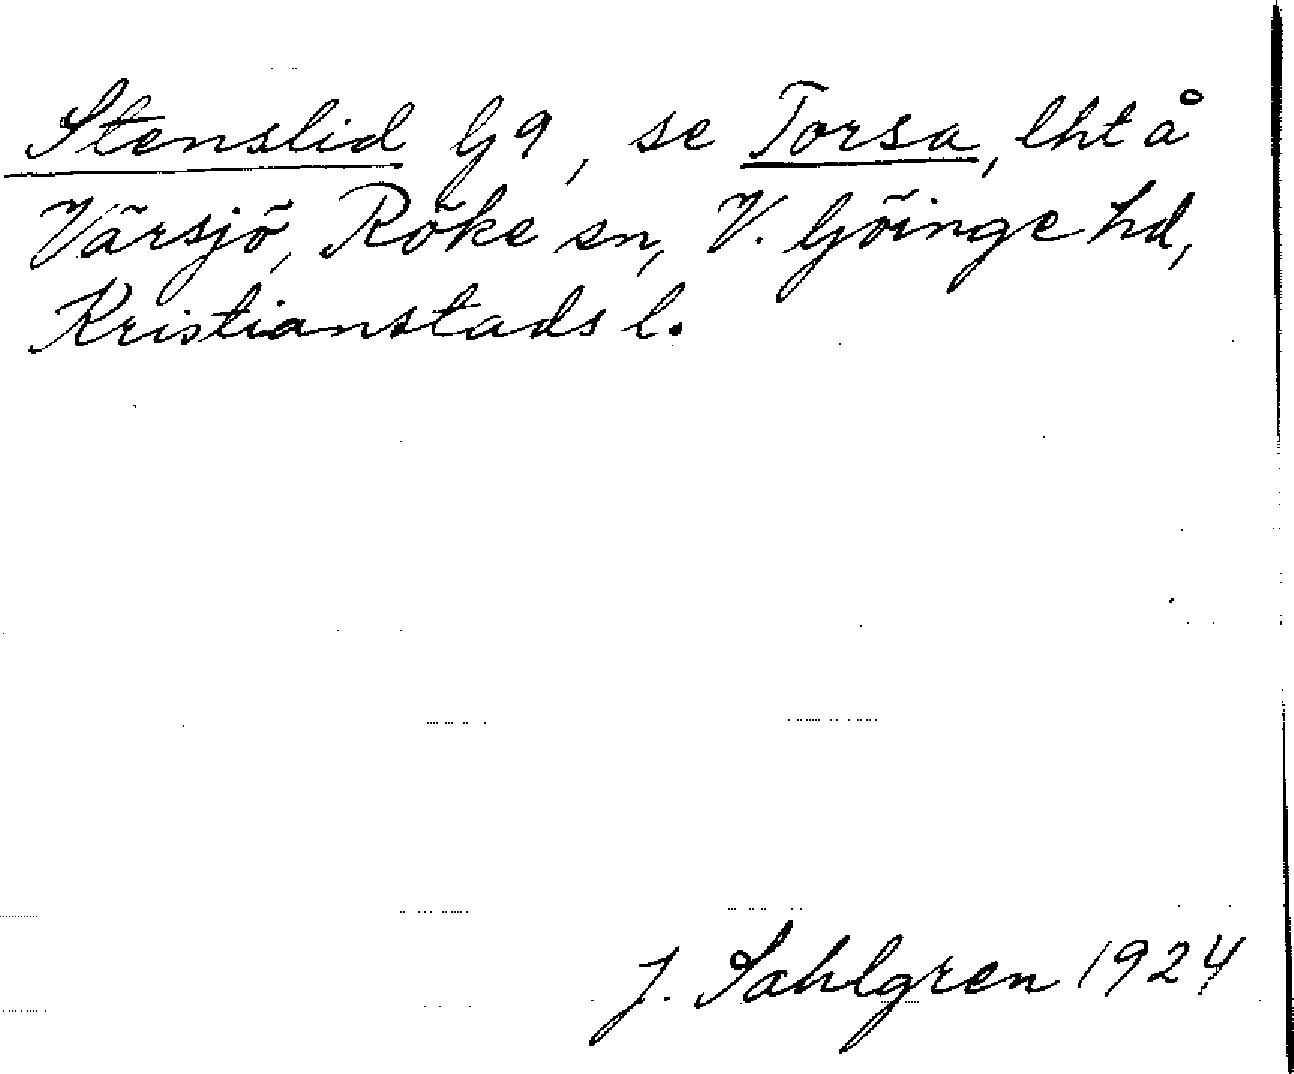 Stenslid G9, se Torsa, lht å
Värsjö, Röke sn, V. Göinge hd,
Kristianstads l.
J. Sahlgren 1924